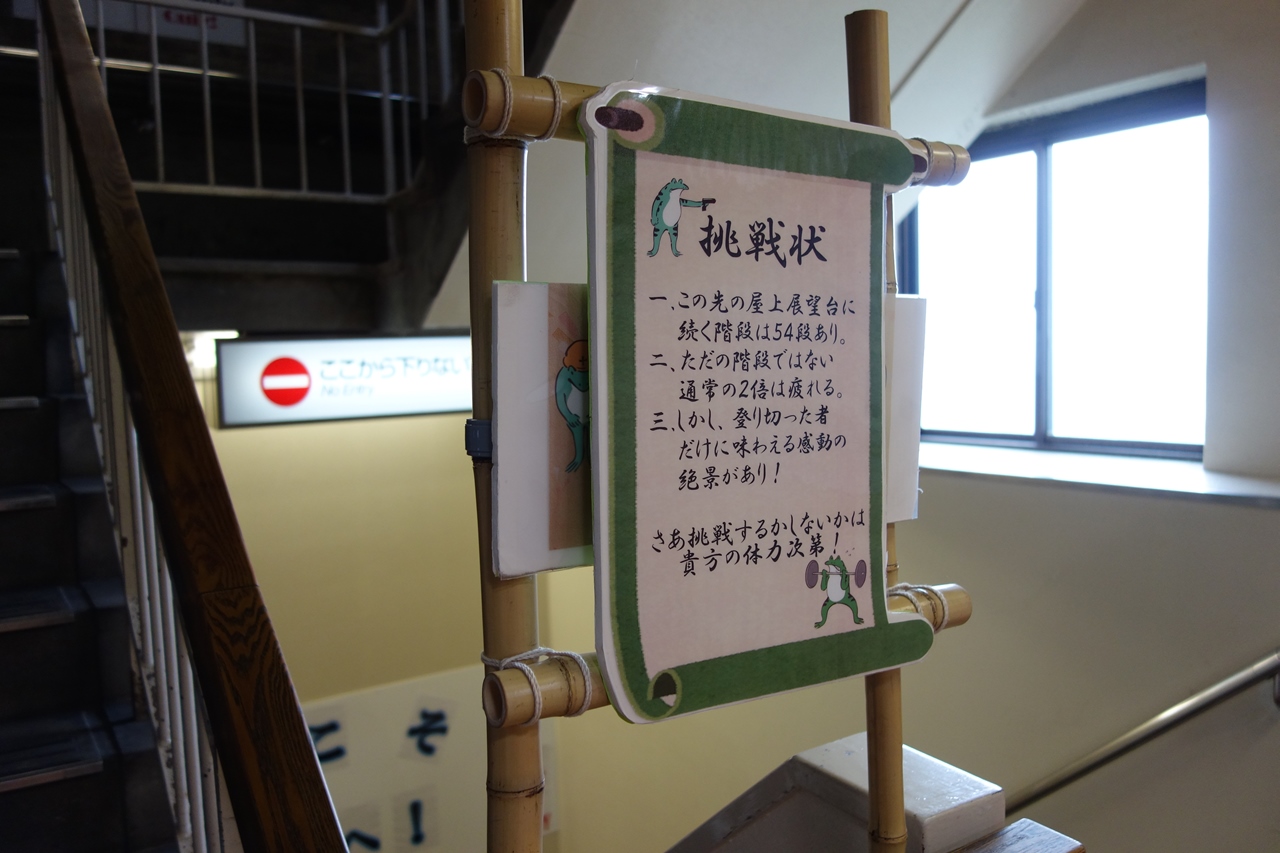 挑戦状
一、この先の屋上展望台に
続く階段は54段あり。
二、ただの階段ではない
通常の2倍は疲れる。
三、しかし、登り切った者
だけに味わえる感動の
絶景があり！
さあ挑戦するかしないかは
貴方の体力次第！
ここから下りない
No Entry
こそ
へ！